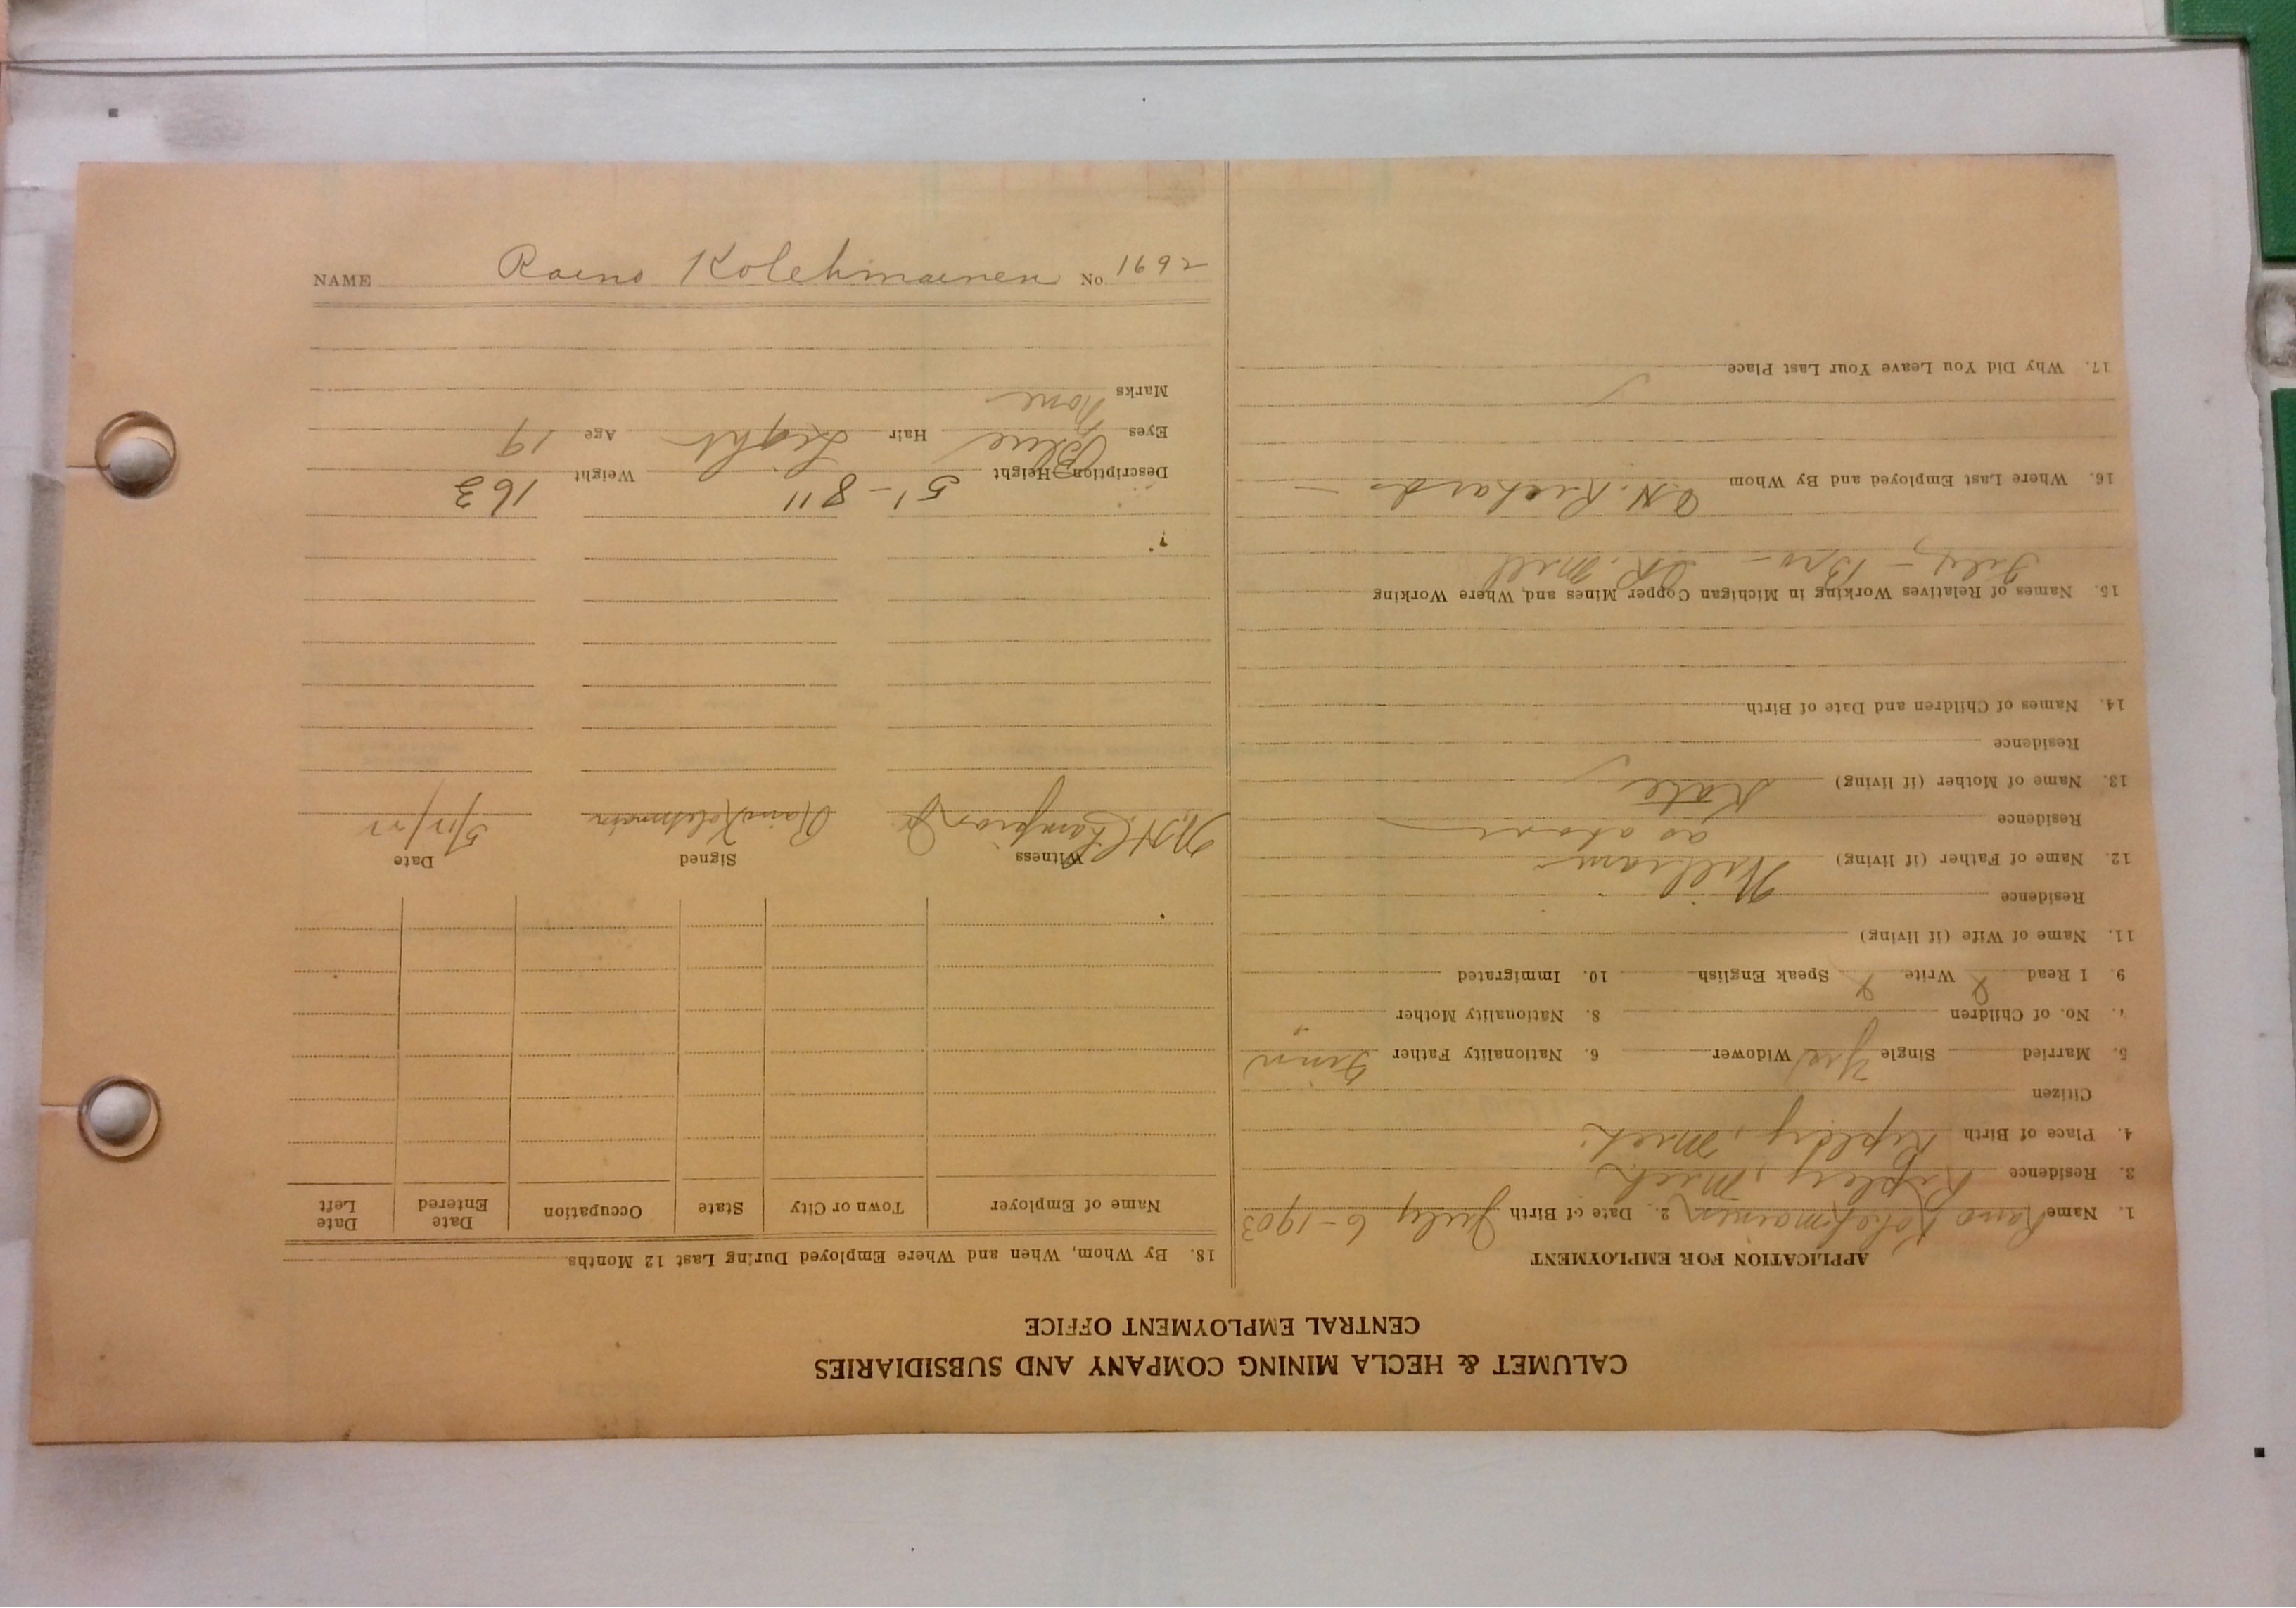 CALUMET & HECLA MINING COMPANY AND SUBSIDIARIES
CENTRAL EMPLOYMENT OFFICE
APPLICATION FOR EMPLOYMENT
1. Name Raino Kolehmainen 2. Date of Birth July 6-1903
3. Residence Ripley, Mich.
4. Place of Birth Ripley, Mich.
Citizen
5. Married Single Yes Widower 6. Nationality Father Finn
7. No. of Children 8. Nationality Mother "
9. I Read X Write X Speak English 10. Immigrated
11. Name of Wife (if living)
Residence
12. Name of Father (if living) William
Residence as above
13. Name of Mother (if living) Kate
Residence
14. Names of Children and Date of Birth
15. Names of Relatives Working in Michigan Copper Mines and Where Working
- Bro - Mill
16. Where Last Employed and By Whom O.N. Richards -
17. Why Did You Leave Your Last Place
18. By Whom, When and Where Employed During Last 12 Months
Name of Employer Town or City State Occupation Date Entered Date Left
Witness Signed Date
W.H. Champion Jr. Raino Kolehmainen 5/11/22
Description—Height 5'-8" Weight 163
Eyes Blue Hair Light Age 19
Marks None
NAME Raino Kolehmainen No. 1692